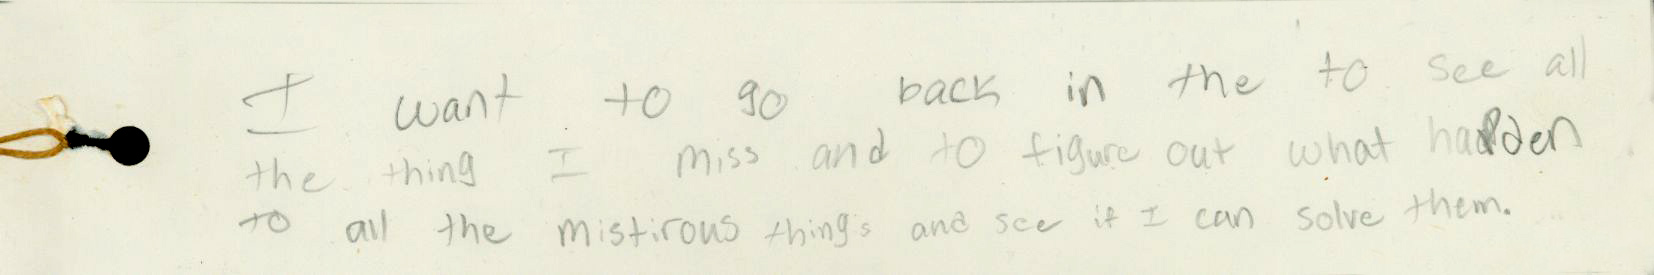 I want to go back in the to see all
the thing I miss and to figure out what happen
to all the mistirous things and see if I can solve them.